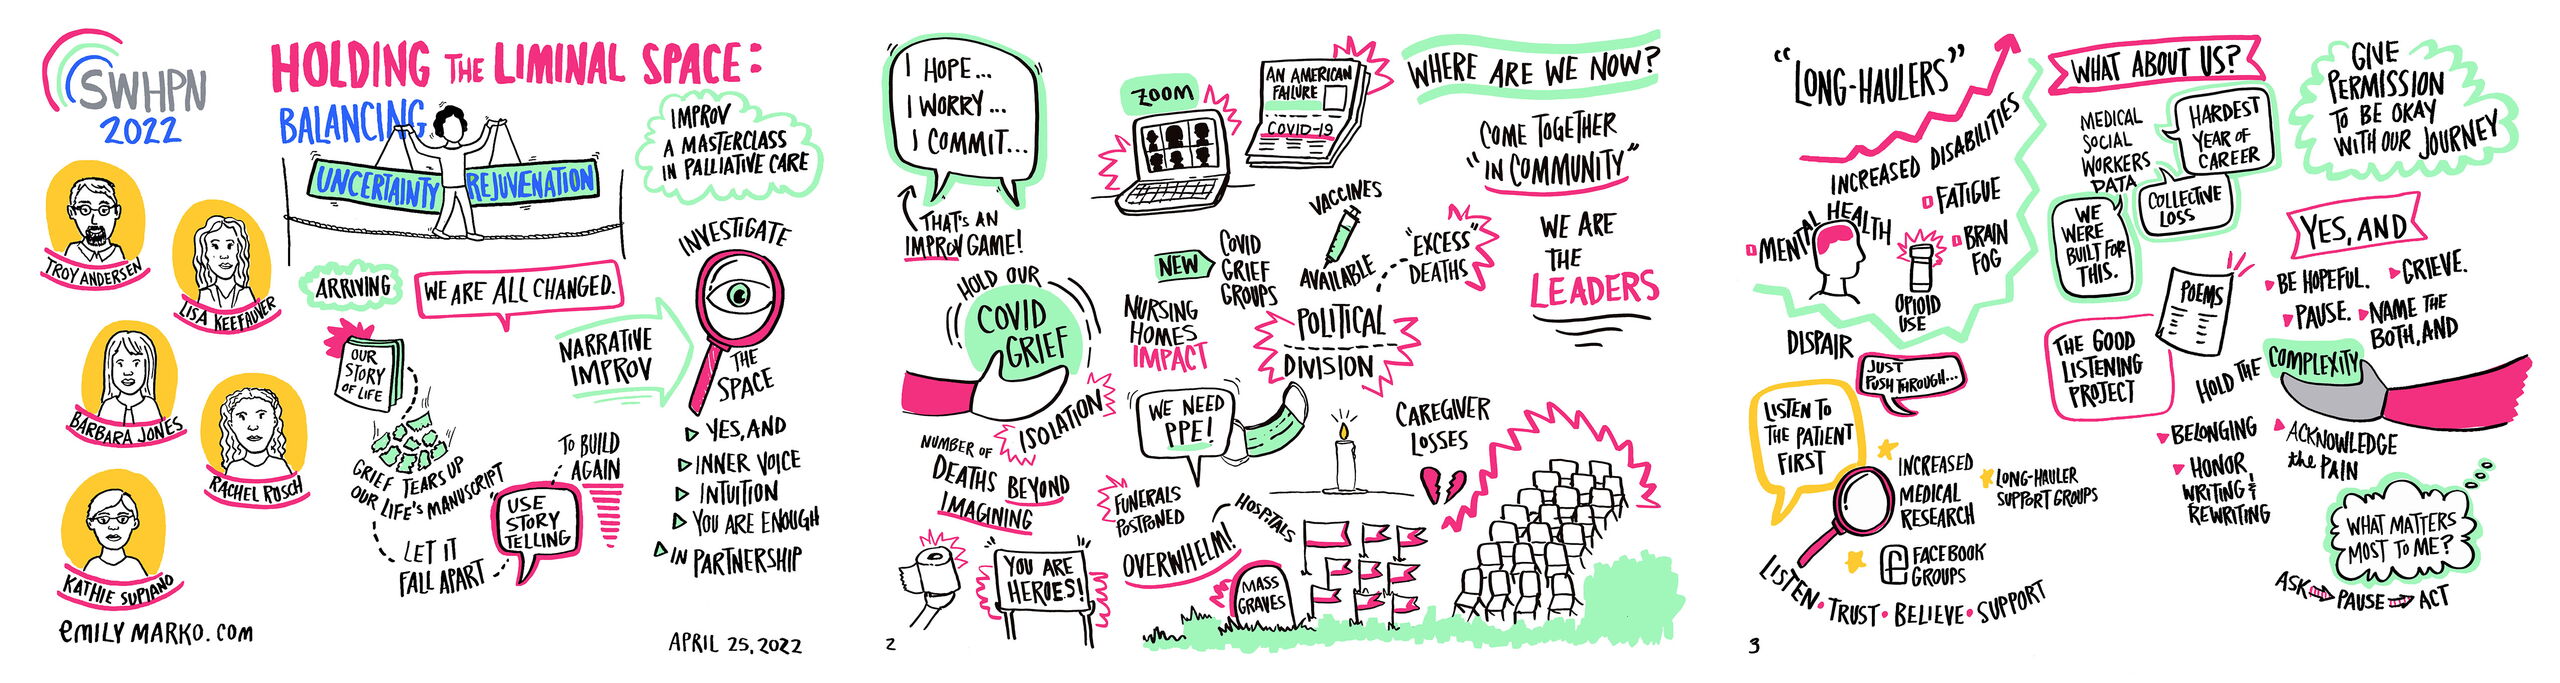 SWHPN
2022
HOLDING THE LIMINAL SPACE:
BALANCING
UNCERTAINTY
REJUVENATION
IMPROV
A MASTERCLASS
IN PALLIATIVE CARE
TROY ANDERSEN
LISA KEEFAUVER
BARBARA JONES
RACHEL RUSCH
KATHIE SUPIANO
EMILY MARKO.COM
ARRIVING
WE ARE ALL CHANGED.
OUR
STORY
OF LIFE
GRIEF TEARS UP
OUR LIFE'S MANUSCRIPT
LET IT
FALL APART
USE
STORY
TELLING
TO BUILD
AGAIN
NARRATIVE
IMPROV
INVESTIGATE
THE
SPACE
YES, AND
INNER VOICE
INTUITION
YOU ARE ENOUGH
IN PARTNERSHIP
APRIL 25, 2022
I HOPE...
I WORRY...
I COMMIT...
THAT'S AN
IMPROV GAME!
ZOOM
AN AMERICAN
FAILURE
COVID-19
WHERE ARE WE NOW?
COME TOGETHER
"IN COMMUNITY"
WE ARE
THE
LEADERS
HOLD OUR
COVID
GRIEF
NEW
COVID
GRIEF
GROUPS
VACCINES
AVAILABLE
"EXCESS"
DEATHS
NURSING
HOMES
IMPACT
POLITICAL
DIVISION
ISOLATION
WE NEED
PPE!
CAREGIVER
LOSSES
NUMBER OF
DEATHS BEYOND
IMAGINING
FUNERALS
POSTPONED
HOSPITALS
OVERWHELM!
YOU ARE
HEROES!
MASS
GRAVES
2
"LONG-HAULERS"
INCREASED DISABILITIES
FATIGUE
MENTAL HEALTH
BRAIN
FOG
OPIOID
USE
DISPAIR
JUST
PUSH THROUGH...
LISTEN TO
THE PATIENT
FIRST
INCREASED
MEDICAL
RESEARCH
LONG-HAULER
SUPPORT GROUPS
FACEBOOK
GROUPS
LISTEN • TRUST • BELIEVE • SUPPORT
3
WHAT ABOUT US?
MEDICAL
SOCIAL
WORKERS
DATA
HARDEST
YEAR OF
CAREER
COLLECTIVE
LOSS
WE
WERE
BUILT FOR
THIS.
POEMS
THE GOOD
LISTENING
PROJECT
GIVE
PERMISSION
TO BE OKAY
WITH OUR JOURNEY
YES, AND
BE HOPEFUL.
GRIEVE.
PAUSE.
NAME THE
BOTH, AND
HOLD THE
COMPLEXITY
BELONGING
HONOR
WRITING &
REWRITING
ACKNOWLEDGE
the PAIN
WHAT MATTERS
MOST TO ME?
ASK PAUSE ACT